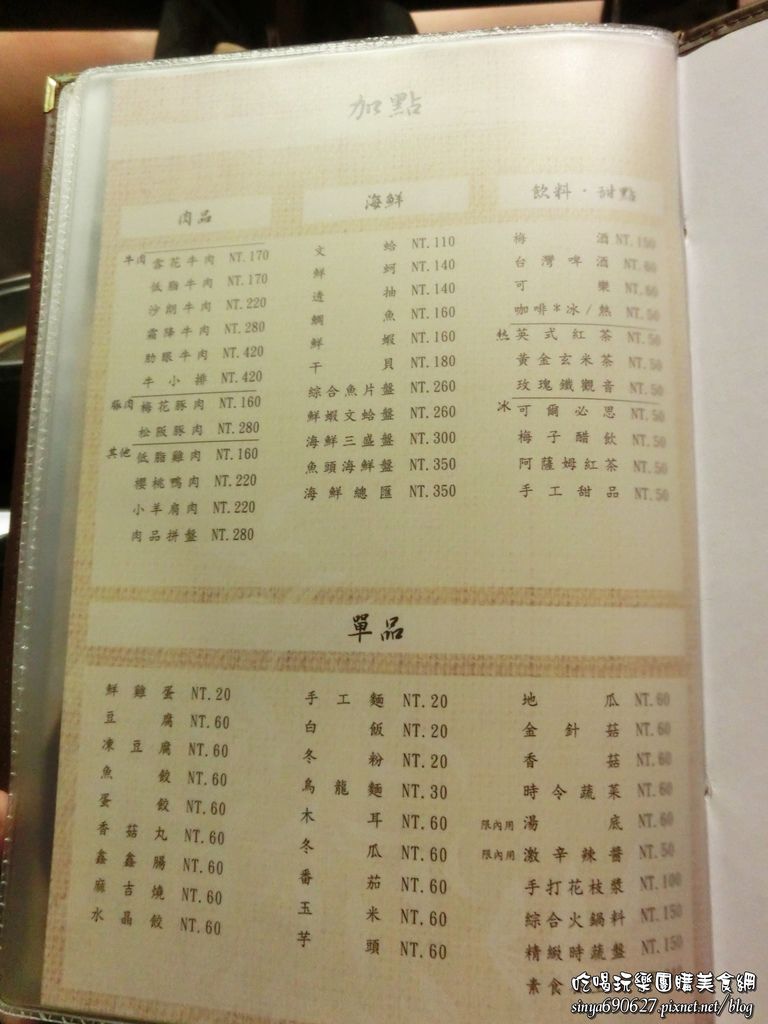 加點
肉品
牛肉 雪花牛肉 NT.170
低脂牛肉 NT.170
沙朗牛肉 NT.220
霜降牛肉 NT.280
肋眼牛肉 NT.420
牛小排 NT.420
豚肉 梅花豚肉 NT.160
松阪豚肉 NT.280
其他 低脂雞肉 NT.160
櫻桃鴨肉 NT.220
小羊肩肉 NT.220
肉品拼盤 NT.280
海鮮
文蛤 NT.110
鮮蚵 NT.140
透抽 NT.140
鯛魚 NT.160
鮮蝦 NT.160
干貝 NT.180
綜合魚片盤 NT.260
鮮蝦文蛤盤 NT.260
海鮮三盛盤 NT.300
魚頭海鮮盤 NT.350
海鮮總匯 NT.350
飲料·甜點
梅酒 NT.150
台灣啤酒 NT.60
可樂 NT.50
咖啡*冰/熱 NT.50
熱 英式紅茶 NT.50
黃金玄米茶 NT.50
玫瑰鐵觀音 NT.50
冰 可爾必思 NT.50
梅子醋飲 NT.50
阿薩姆紅茶 NT.50
手工甜品 NT.50
單品
鮮雞蛋 NT.20
豆腐 NT.60
凍豆腐 NT.60
魚餃 NT.60
蛋餃 NT.60
香菇丸 NT.60
鑫鑫腸 NT.60
麻吉燒 NT.60
水晶餃 NT.60
手工麵 NT.20
白飯 NT.20
冬粉 NT.20
烏龍麵 NT.30
木耳 NT.60
冬瓜 NT.60
番茄 NT.60
玉米 NT.60
芋頭 NT.60
地瓜 NT.60
金針菇 NT.60
香菇 NT.60
時令蔬菜 NT.60
限內用 湯底 NT.60
限內用 激辛辣醬 NT.50
手打花枝漿 NT.100
綜合火鍋料 NT.150
精緻時蔬盤 NT.150
素食
吃喝玩樂團購美食網
sinya690627.pixnet.net/blog